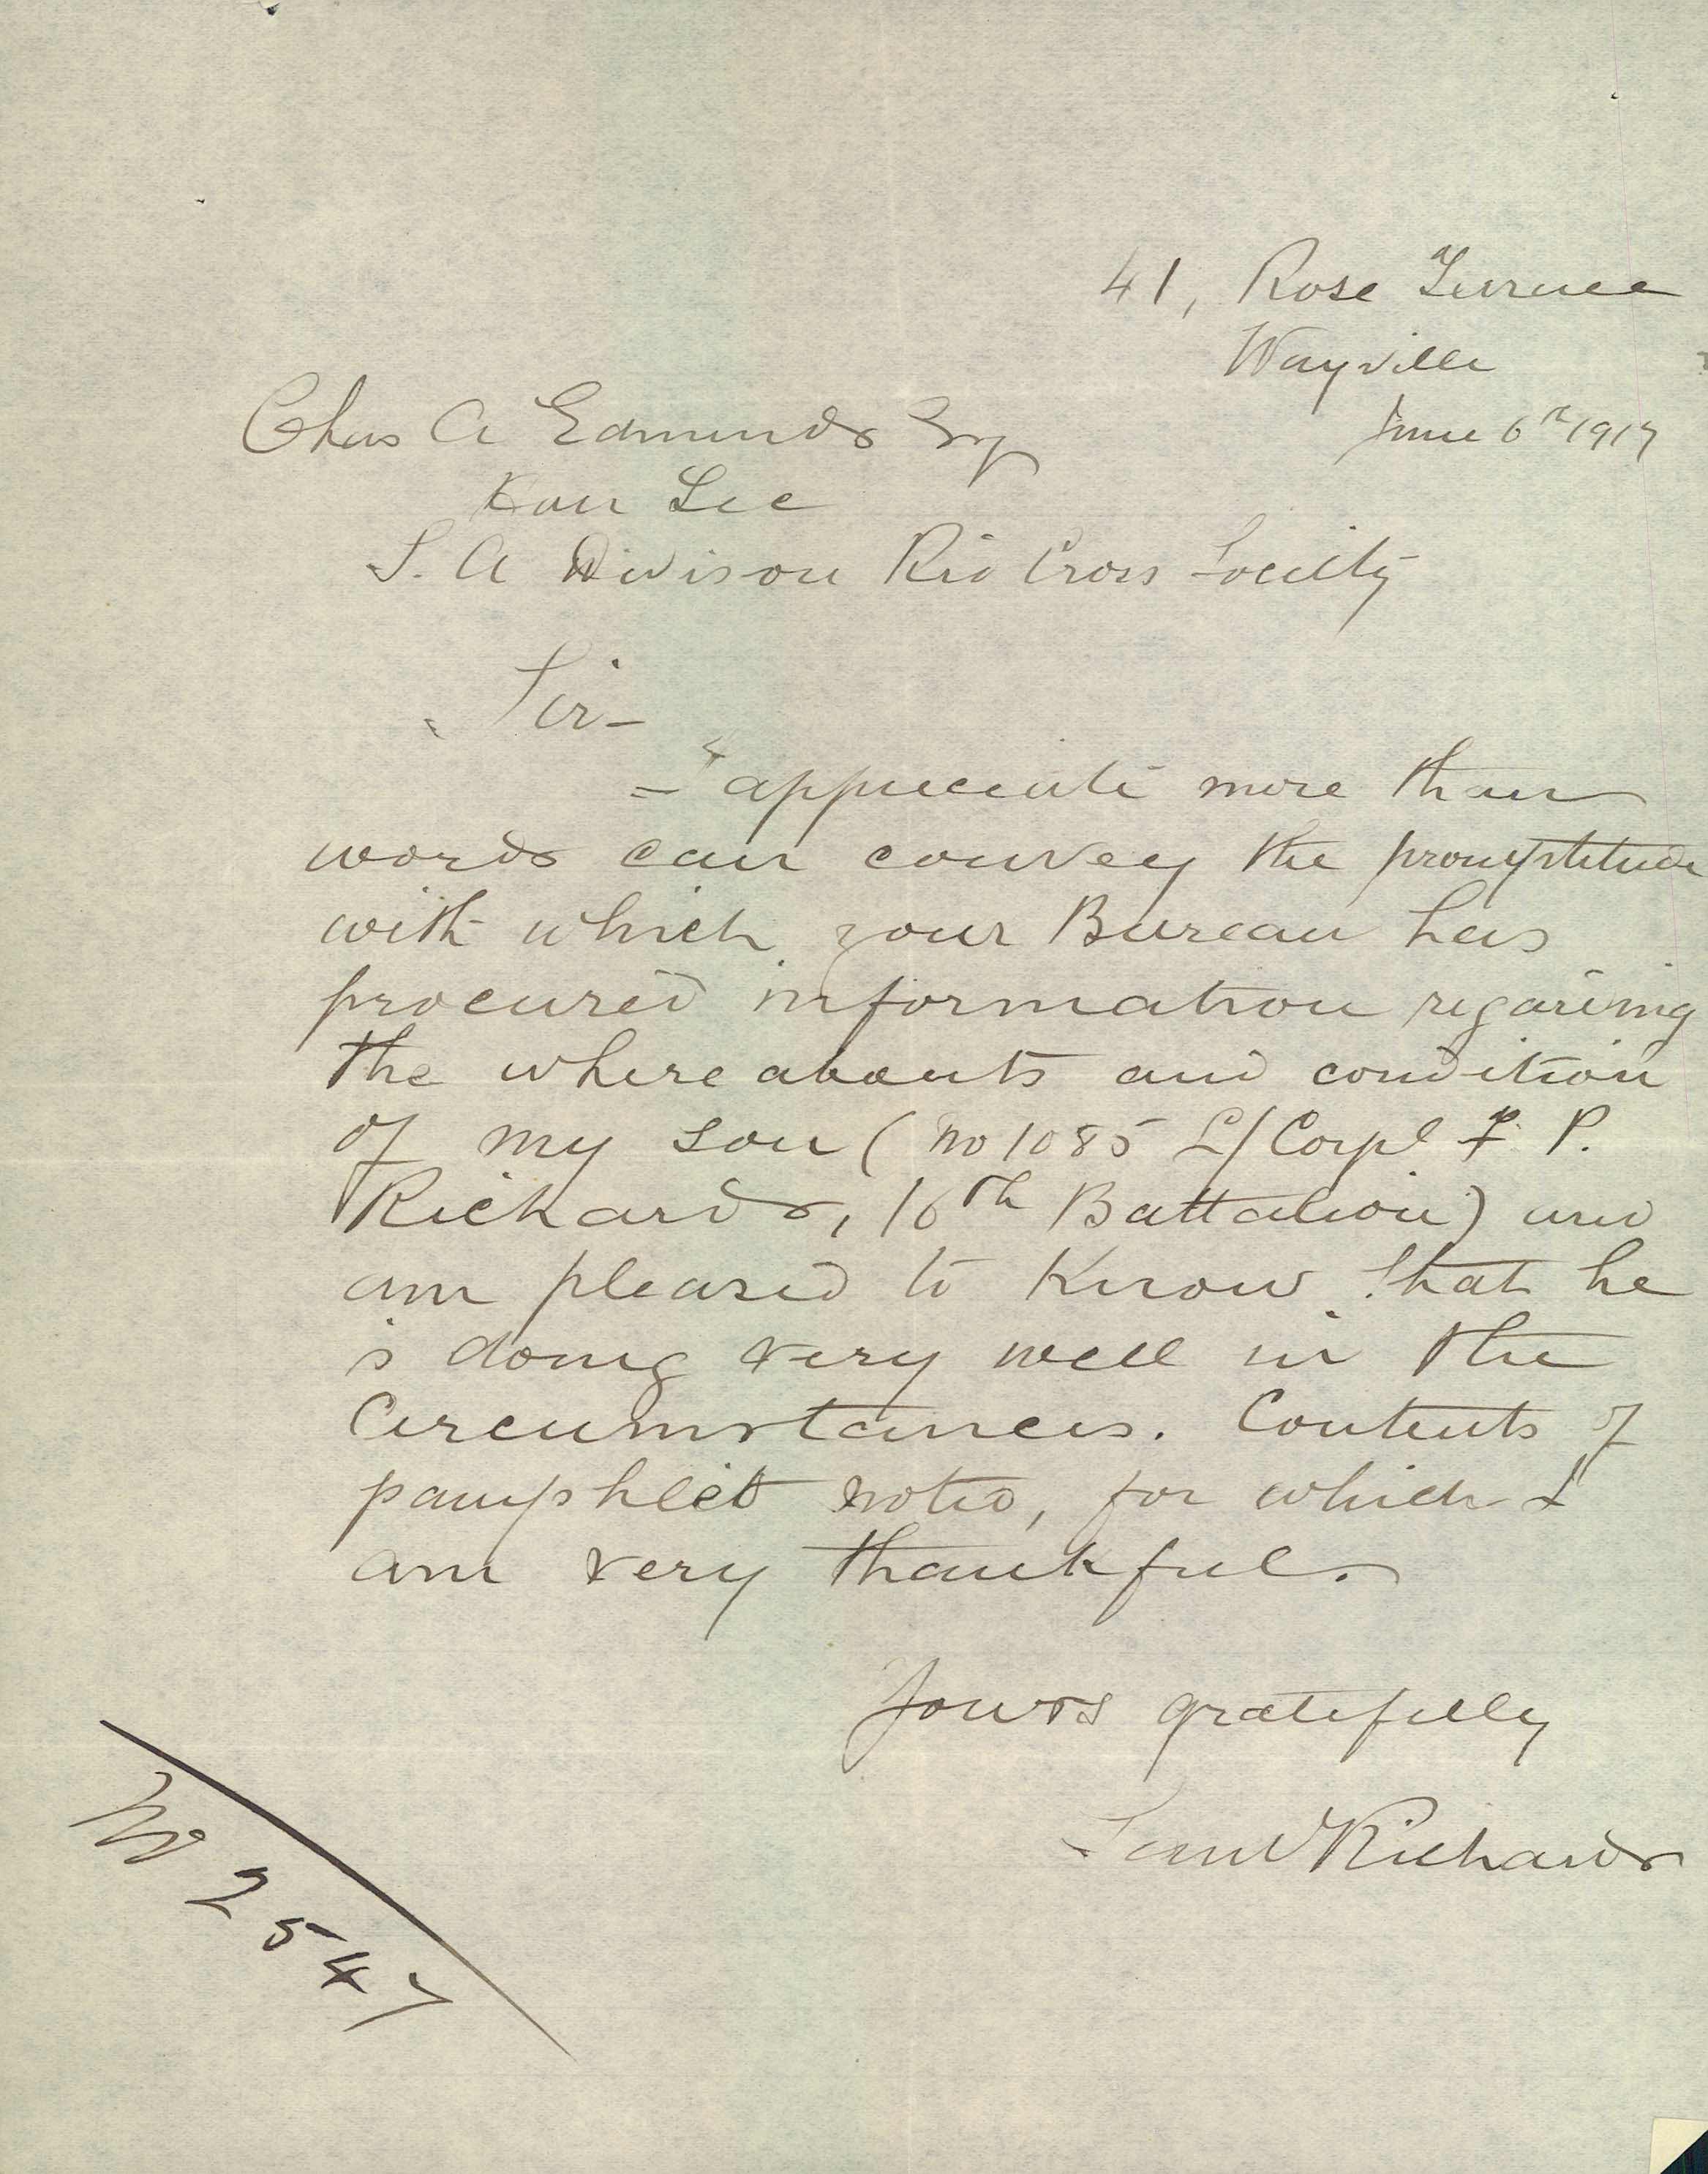 41, Rose Terrace
Wayville
June 6th 1917
Chas A Edmunds Esq
Hon Sec
S. A Divison Red Cross Society
Sir -
I appreciate more than
words can convey the promptitude
with which your Bureau has
procured information regarding
the whereabouts and condition
of my son (No 1085 L/Corpl F. P.
Richards, 16th Battalion) and
am pleased to know that he
is doing very well in the
Circumstances. Contents of
pamphlet noted, for which I
am very thankful.
Yours gratefully
Saml Richards
No 2547